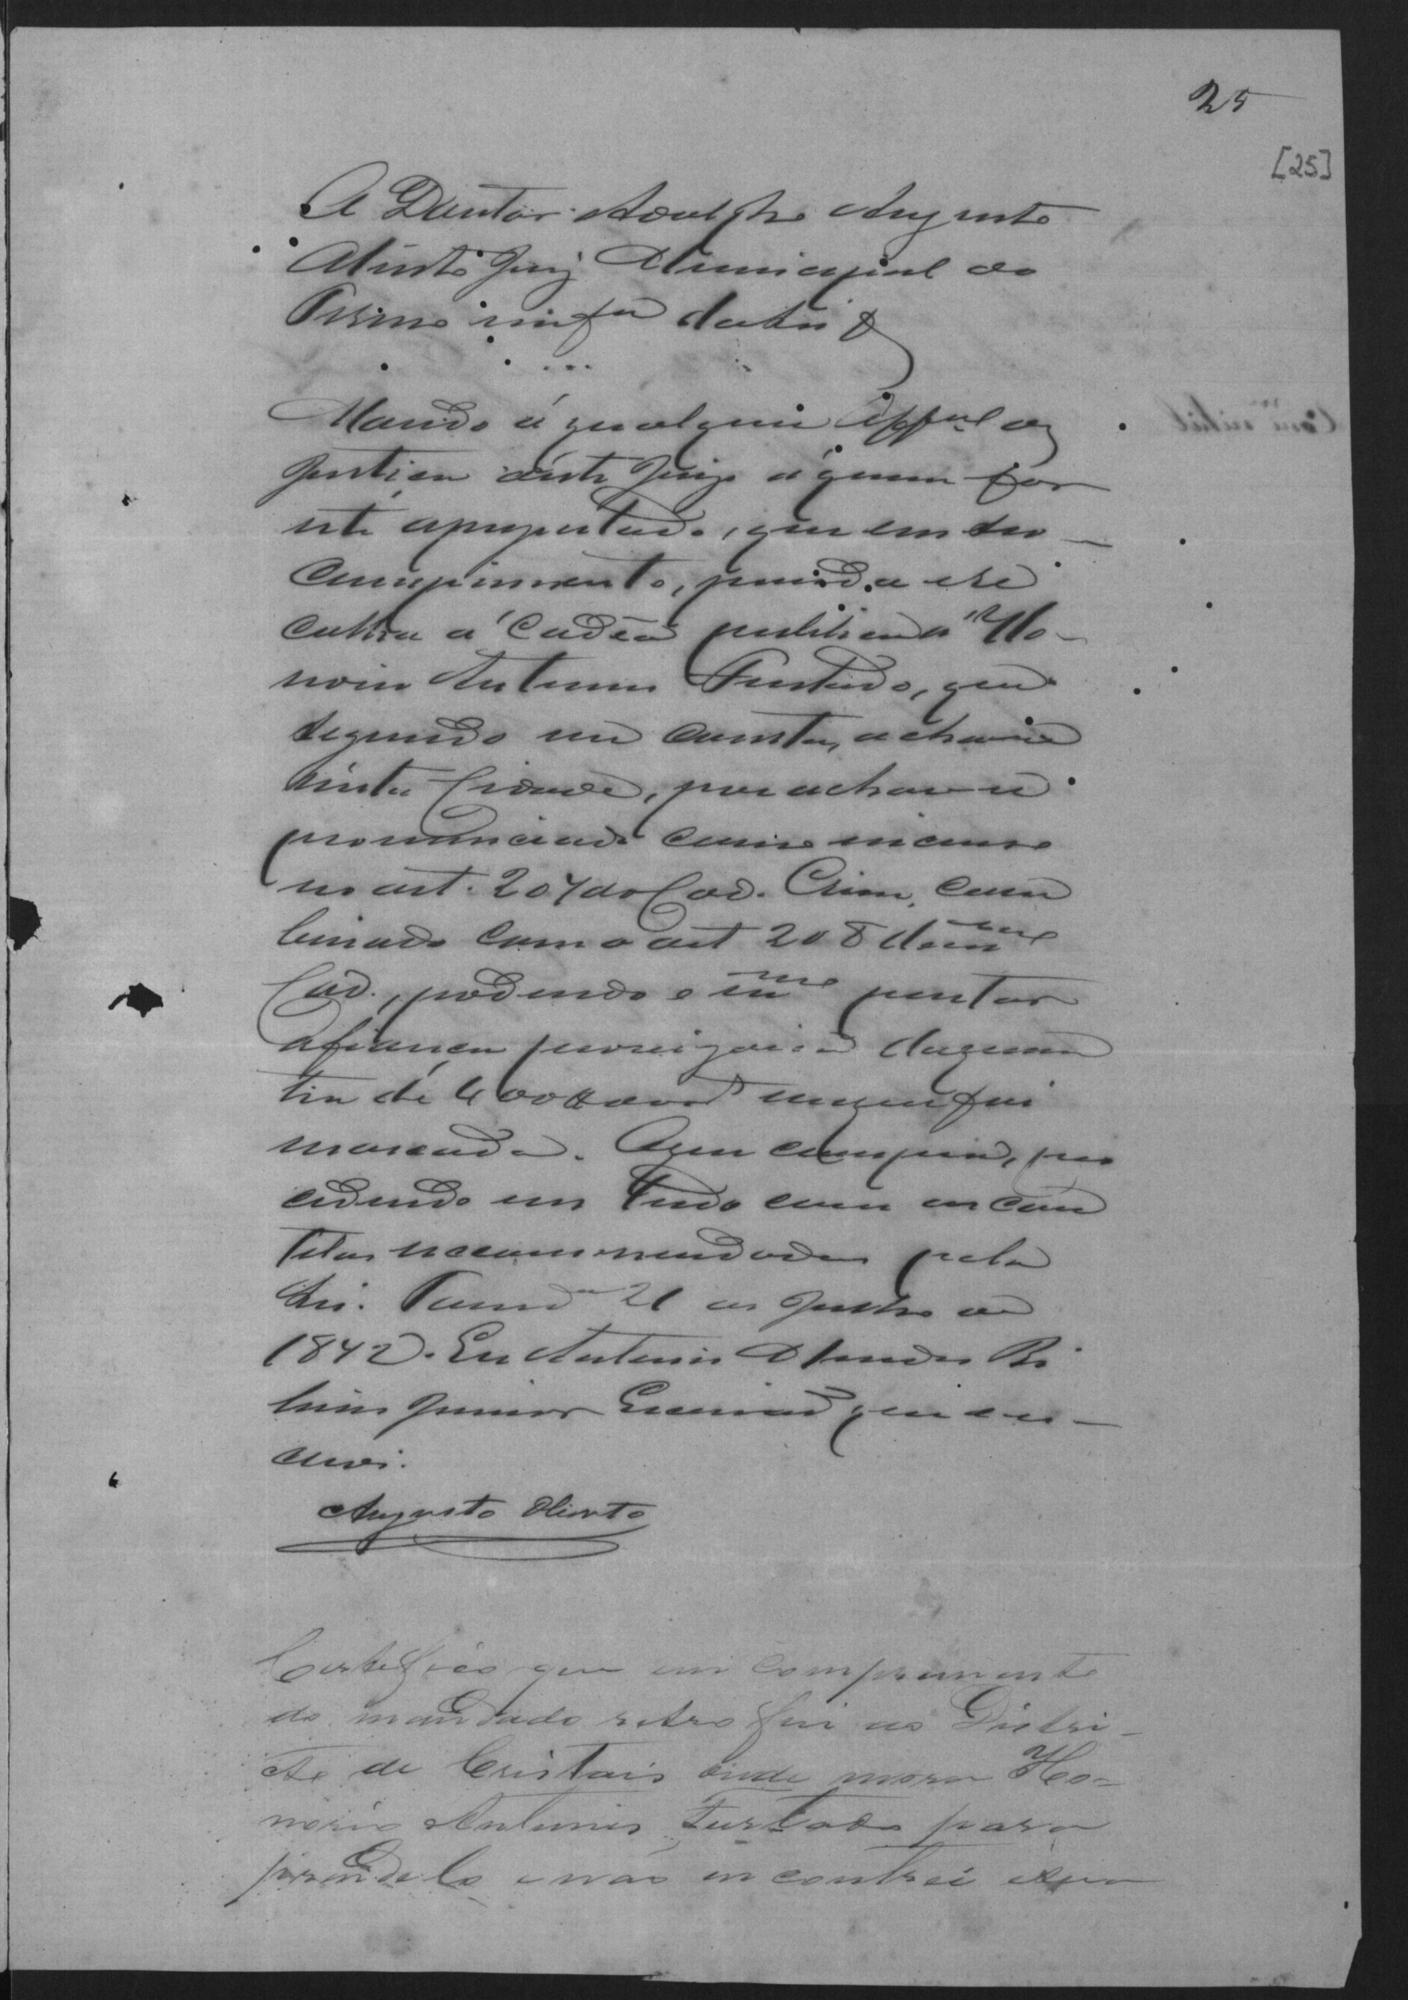 25
[25]
O Doutor Adolpho Augusto
Olinto Juiz Municipal do
Termo na fa da Lei &
Mando á qualquer Offal de
Justiça deste Juizo á quem for
este apresentado, que em seo
cumprimento, prenda e re
colha a Cadêa publica a Ho-
norio Antunes Furtado, que
segundo me consta, achar-se
n'esta Cidade, por achar-se
pronunciado como incurso
no art. 207 do Cod. Crim, com
binado com o art 208 do mmo
Cod., podendo o mmo prestar
a fiança provisoria da quan
tia de 400$000 em que foi
marcada. O que cumpra, pro
cedendo em tudo com as cau
tellas recommendadas pela
Lei. 21 de Julho de
1842. Eu Antonio Mendes Ri
beiro Junior Escrivão que es-
crevi.
Augusto Olinto
Certifico que em comprimento
do mandado retro fui ao Distri-
cto de Cristais onde mora Ho-
norio Antunes Furtado para
prendelo e não encontrei